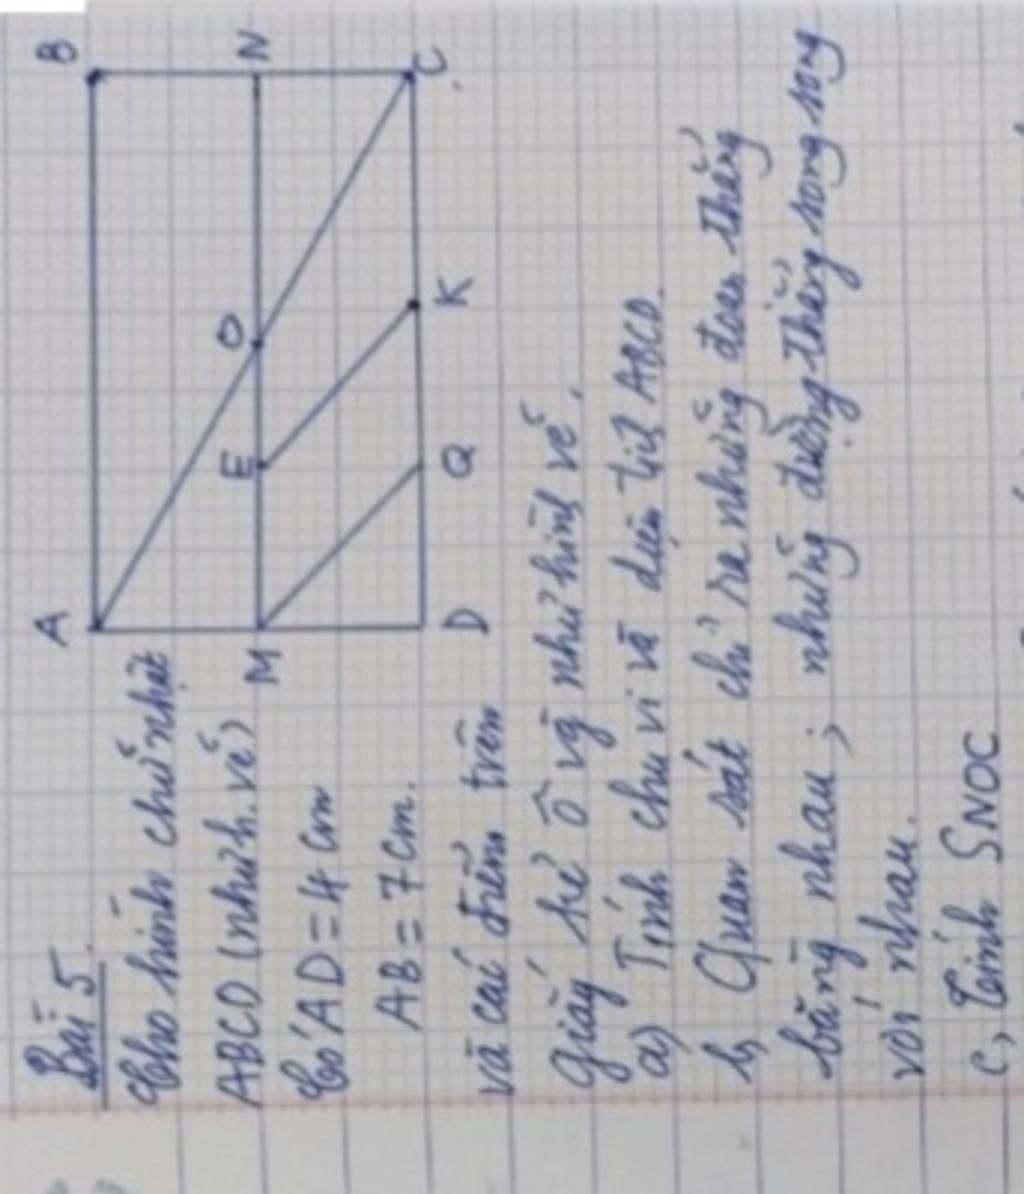 Bài 5.
Cho hình chữ nhật
ABCD (như h.vẽ)
Có AD = 4 cm
AB = 7 cm.
A
B
M
E
O
N
D
Q
K
C
và các điểm trên
giấy kẻ ô vg như hình vẽ.
a) Tính chu vi và diện tích ABCD.
b, Quan sát chỉ ra những đoạn thẳng
bằng nhau ; những đường thẳng song song
với nhau.
c, Tính SNOC